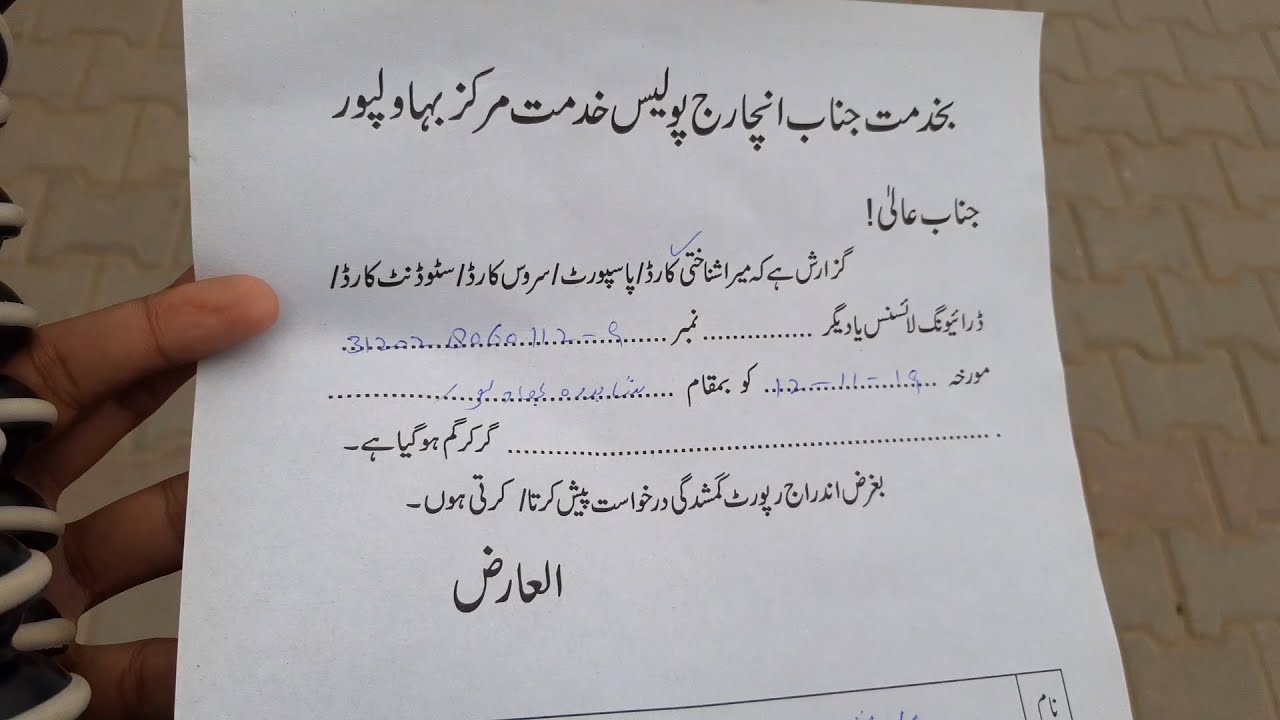 بخدمت جناب انچارج پولیس خدمت مرکز بہاولپور
جناب عالیٰ!
گزارش ہے کہ میرا شناختی کارڈ/پاسپورٹ/سروس کارڈ/سٹوڈنٹ کارڈ/
ڈرائیونگ لائسنس یا دیگر ............... نمبر 31202 8060112-9
مورخہ 12-11-19 کو بمقام بہاولپور
............... گر کر گم ہو گیا ہے۔
بغرض اندراج رپورٹ گمشدگی درخواست پیش کرتا/کرتی ہوں۔
العارض
نام